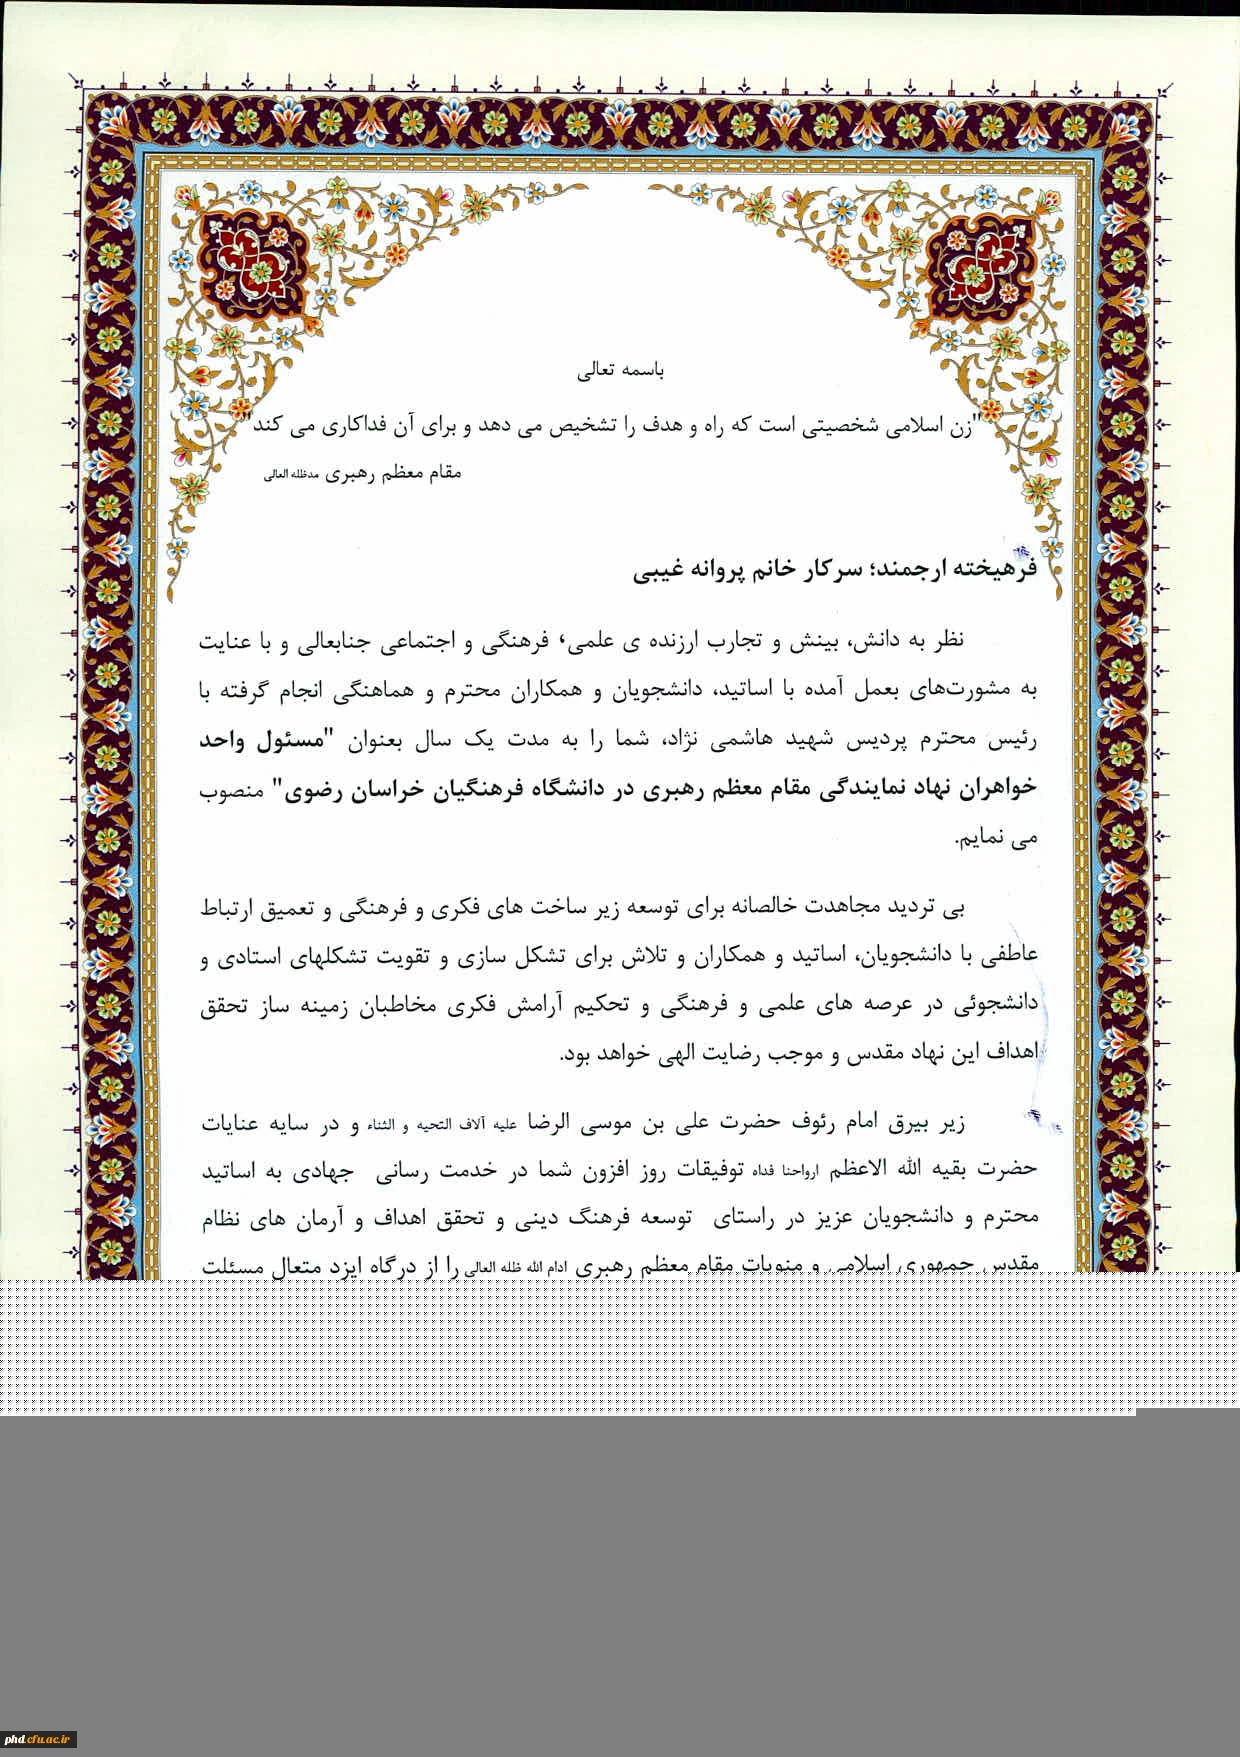 باسمه تعالی
"زن اسلامی شخصیتی است که راه و هدف را تشخیص می دهد و برای آن فداکاری می کند"
مقام معظم رهبری مدظله العالی
فرهیخته ارجمند؛ سرکار خانم پروانه غیبی
نظر به دانش، بینش و تجارب ارزنده ی علمی، فرهنگی و اجتماعی جنابعالی و با عنایت
به مشورت‌های بعمل آمده با اساتید، دانشجویان و همکاران محترم و هماهنگی انجام گرفته با
رئیس محترم پردیس شهید هاشمی نژاد، شما را به مدت یک سال بعنوان "مسئول واحد
خواهران نهاد نمایندگی مقام معظم رهبری در دانشگاه فرهنگیان خراسان رضوی" منصوب
می نمایم.
بی تردید مجاهدت خالصانه برای توسعه زیر ساخت های فکری و فرهنگی و تعمیق ارتباط
عاطفی با دانشجویان، اساتید و همکاران و تلاش برای تشکل سازی و تقویت تشکلهای استادی و
دانشجوئی در عرصه های علمی و فرهنگی و تحکیم آرامش فکری مخاطبان زمینه ساز تحقق
اهداف این نهاد مقدس و موجب رضایت الهی خواهد بود.
زیر بیرق امام رئوف حضرت علی بن موسی الرضا علیه آلاف التحیه و الثناء و در سایه عنایات
حضرت بقیه الله الاعظم ارواحنا فداه توفیقات روز افزون شما در خدمت رسانی جهادی به اساتید
محترم و دانشجویان عزیز در راستای توسعه فرهنگ دینی و تحقق اهداف و آرمان های نظام
مقدس جمهوری اسلامی و منویات مقام معظم رهبری ادام الله ظله العالی را از درگاه ایزد متعال مسئلت
phd.cfu.ac.ir